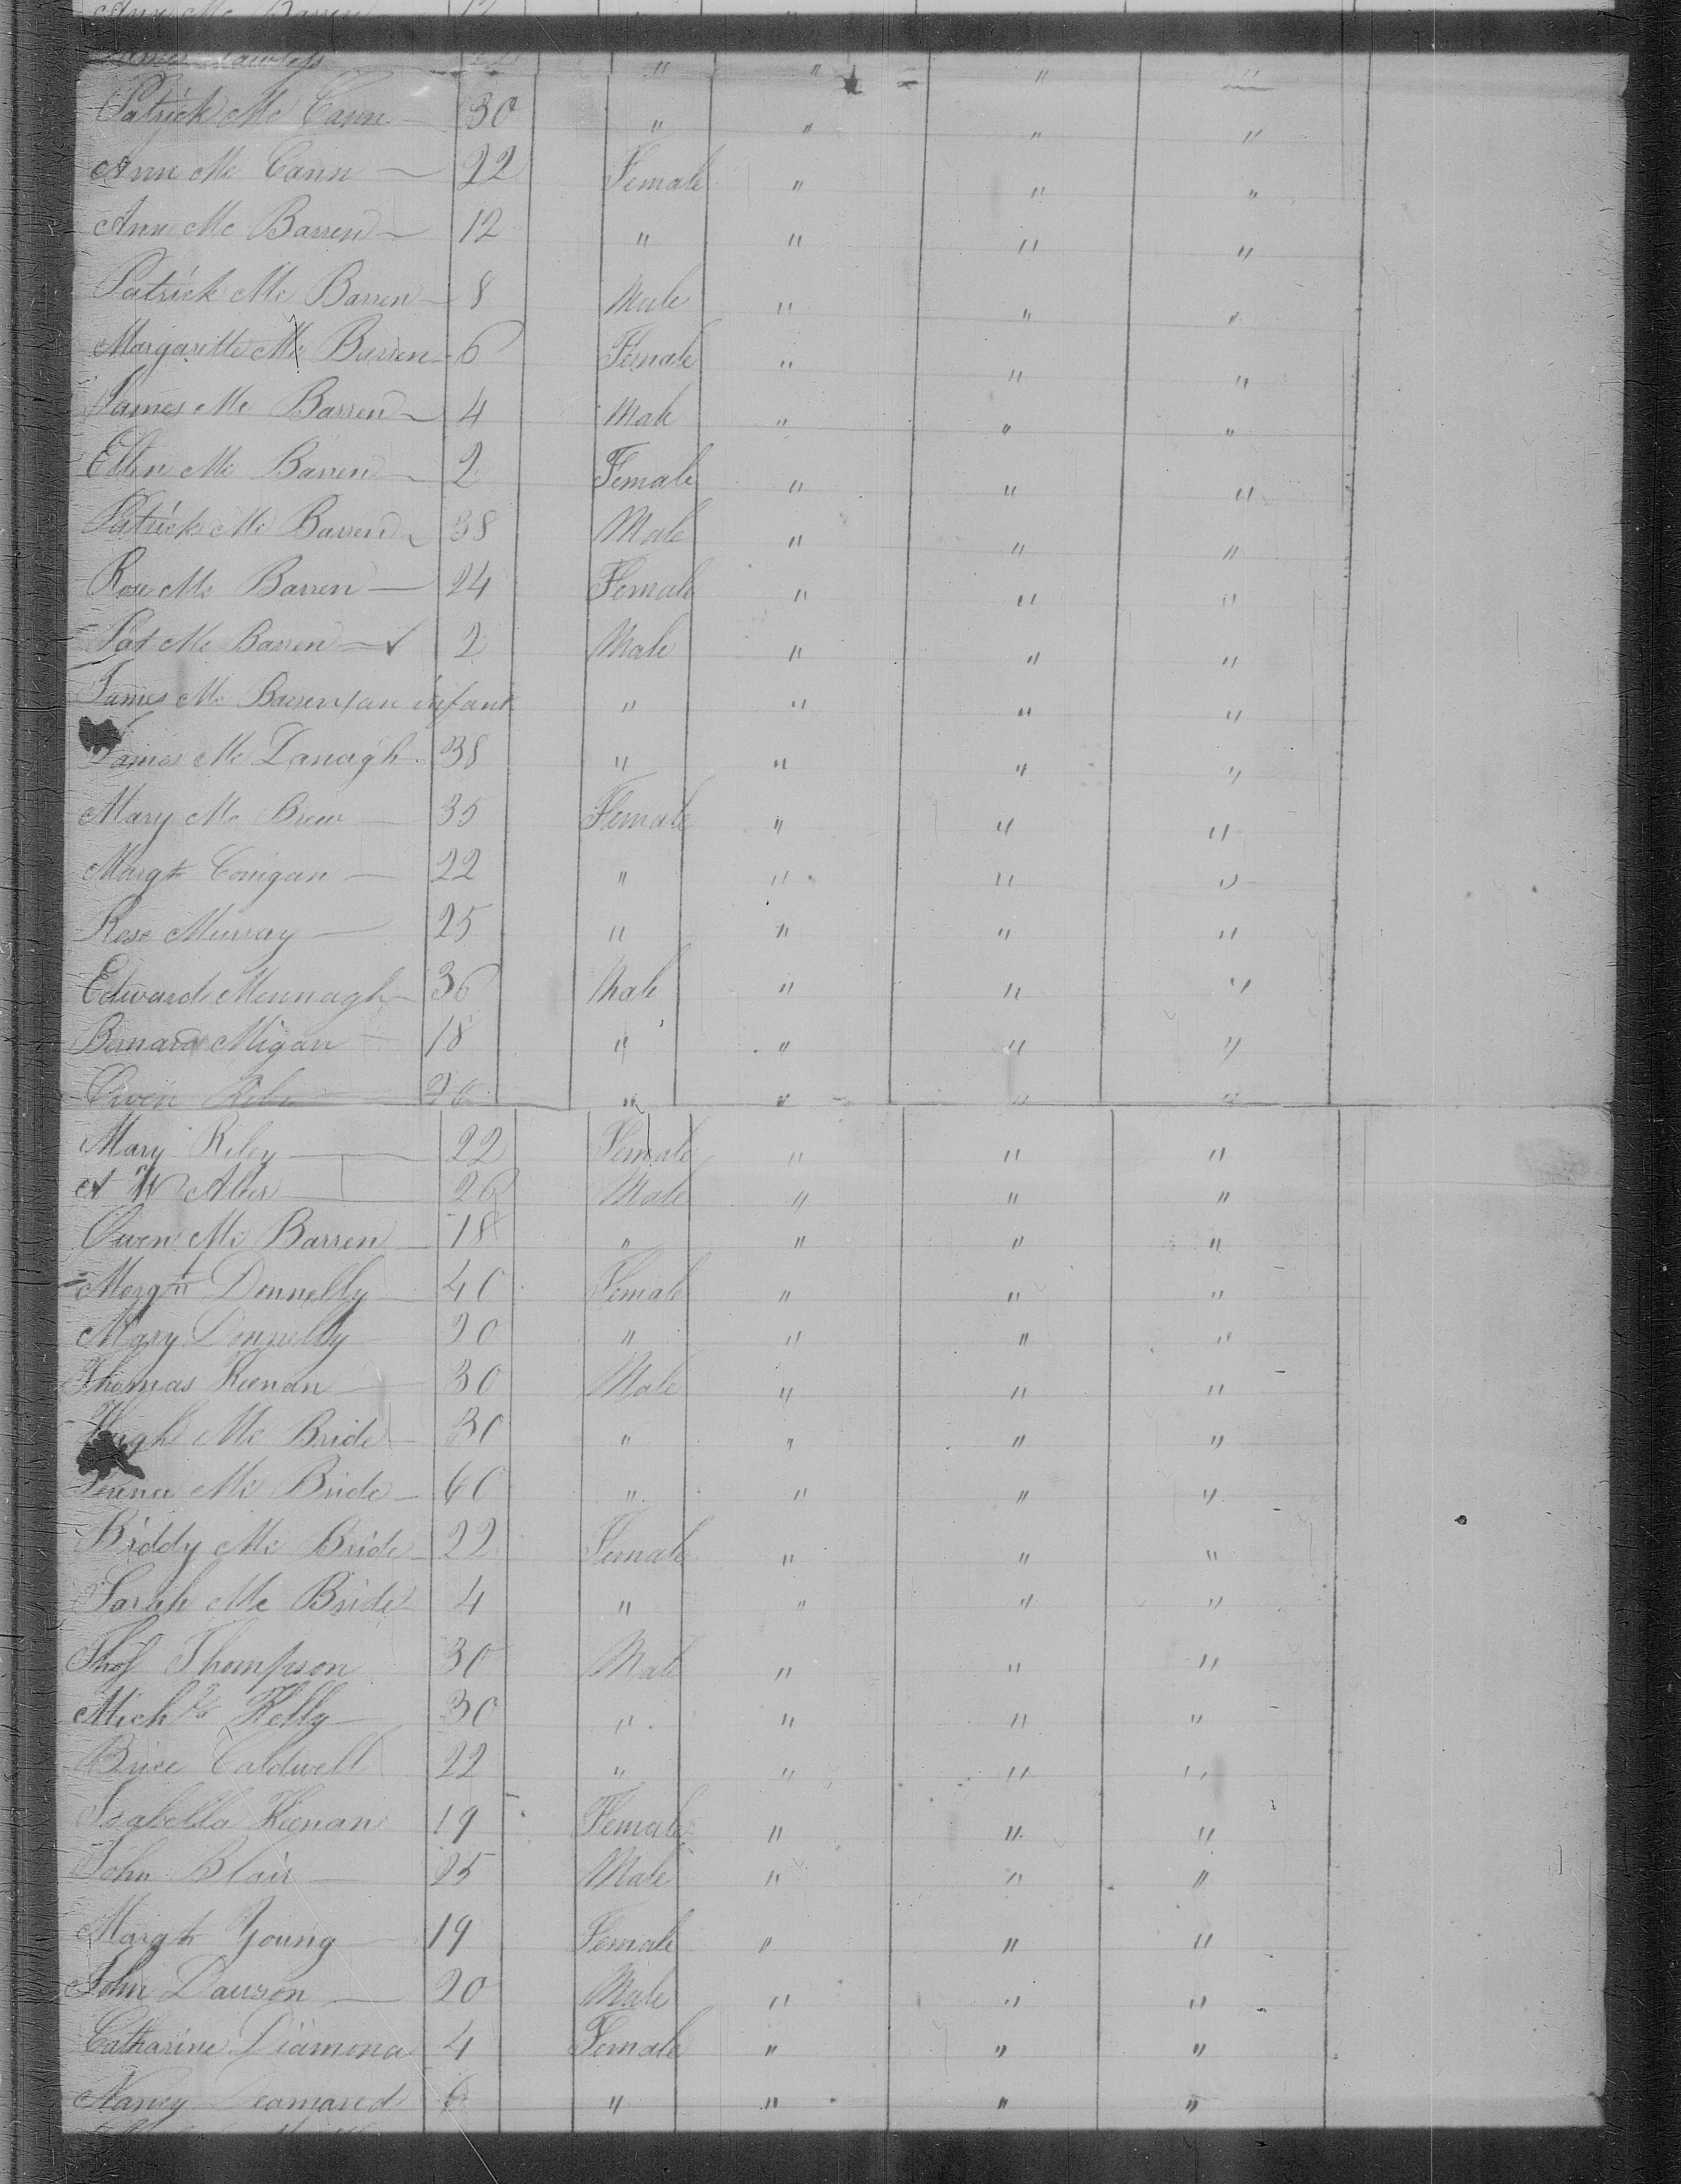 Ann Mc Barren 12
James Lawless 22 " " " "
Patrick Mc Cann 30 " " " "
Ann Mc Cann 22 Female " " "
Ann Mc Barren 12 " " " "
Patrick Mc Barren 8 Male " " "
Margarette Mc Barren 6 Female " " "
James Mc Barren 4 Male " " "
Ellen Mc Barren 2 Female " " "
Patrick Mc Barren 38 Male " " "
Rose Mc Barren 24 Female " " "
Pat Mc Barren 2 Male " " "
James Mc Barren / an infant " " " "
James Mc Danagh 38 " " " "
Mary Mc Brew 35 Female " " "
Margt Corrigan 22 " " " "
Rose Murray 25 " " " "
Edward Mennagh 36 Male " " "
Bernard Migan 18 " " " "
Owen " " " "
Mary Riley 22 Female " " "
26 Male " " "
Owen Mc Barren 18 " " " "
Margt Donnelly 40 Female " " "
Mary Donnelly 20 " " " "
Thomas Keenan 30 Male " " "
Hugh Mc Bride 30 " " " "
Mc Bride 60 " " " "
Biddy Mc Bride 22 Female " " "
Sarah Mc Bride 4 " " " "
Thos Thompson 30 Male " " "
Michl Kelly 30 " " " "
Brice Caldwell 22 " " " "
Isabella Keenan 19 Female " " "
John Blair 25 Male " " "
Margt Young 19 Female " " "
John Dawson 20 Male " " "
Catharine Diamond 4 Female " " "
Nancy Diamand 6 " " " "